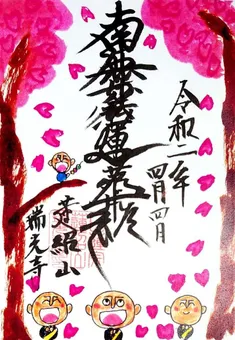 令和二年
四月四日
南無妙法蓮華経
蓮紹山
瑞元寺